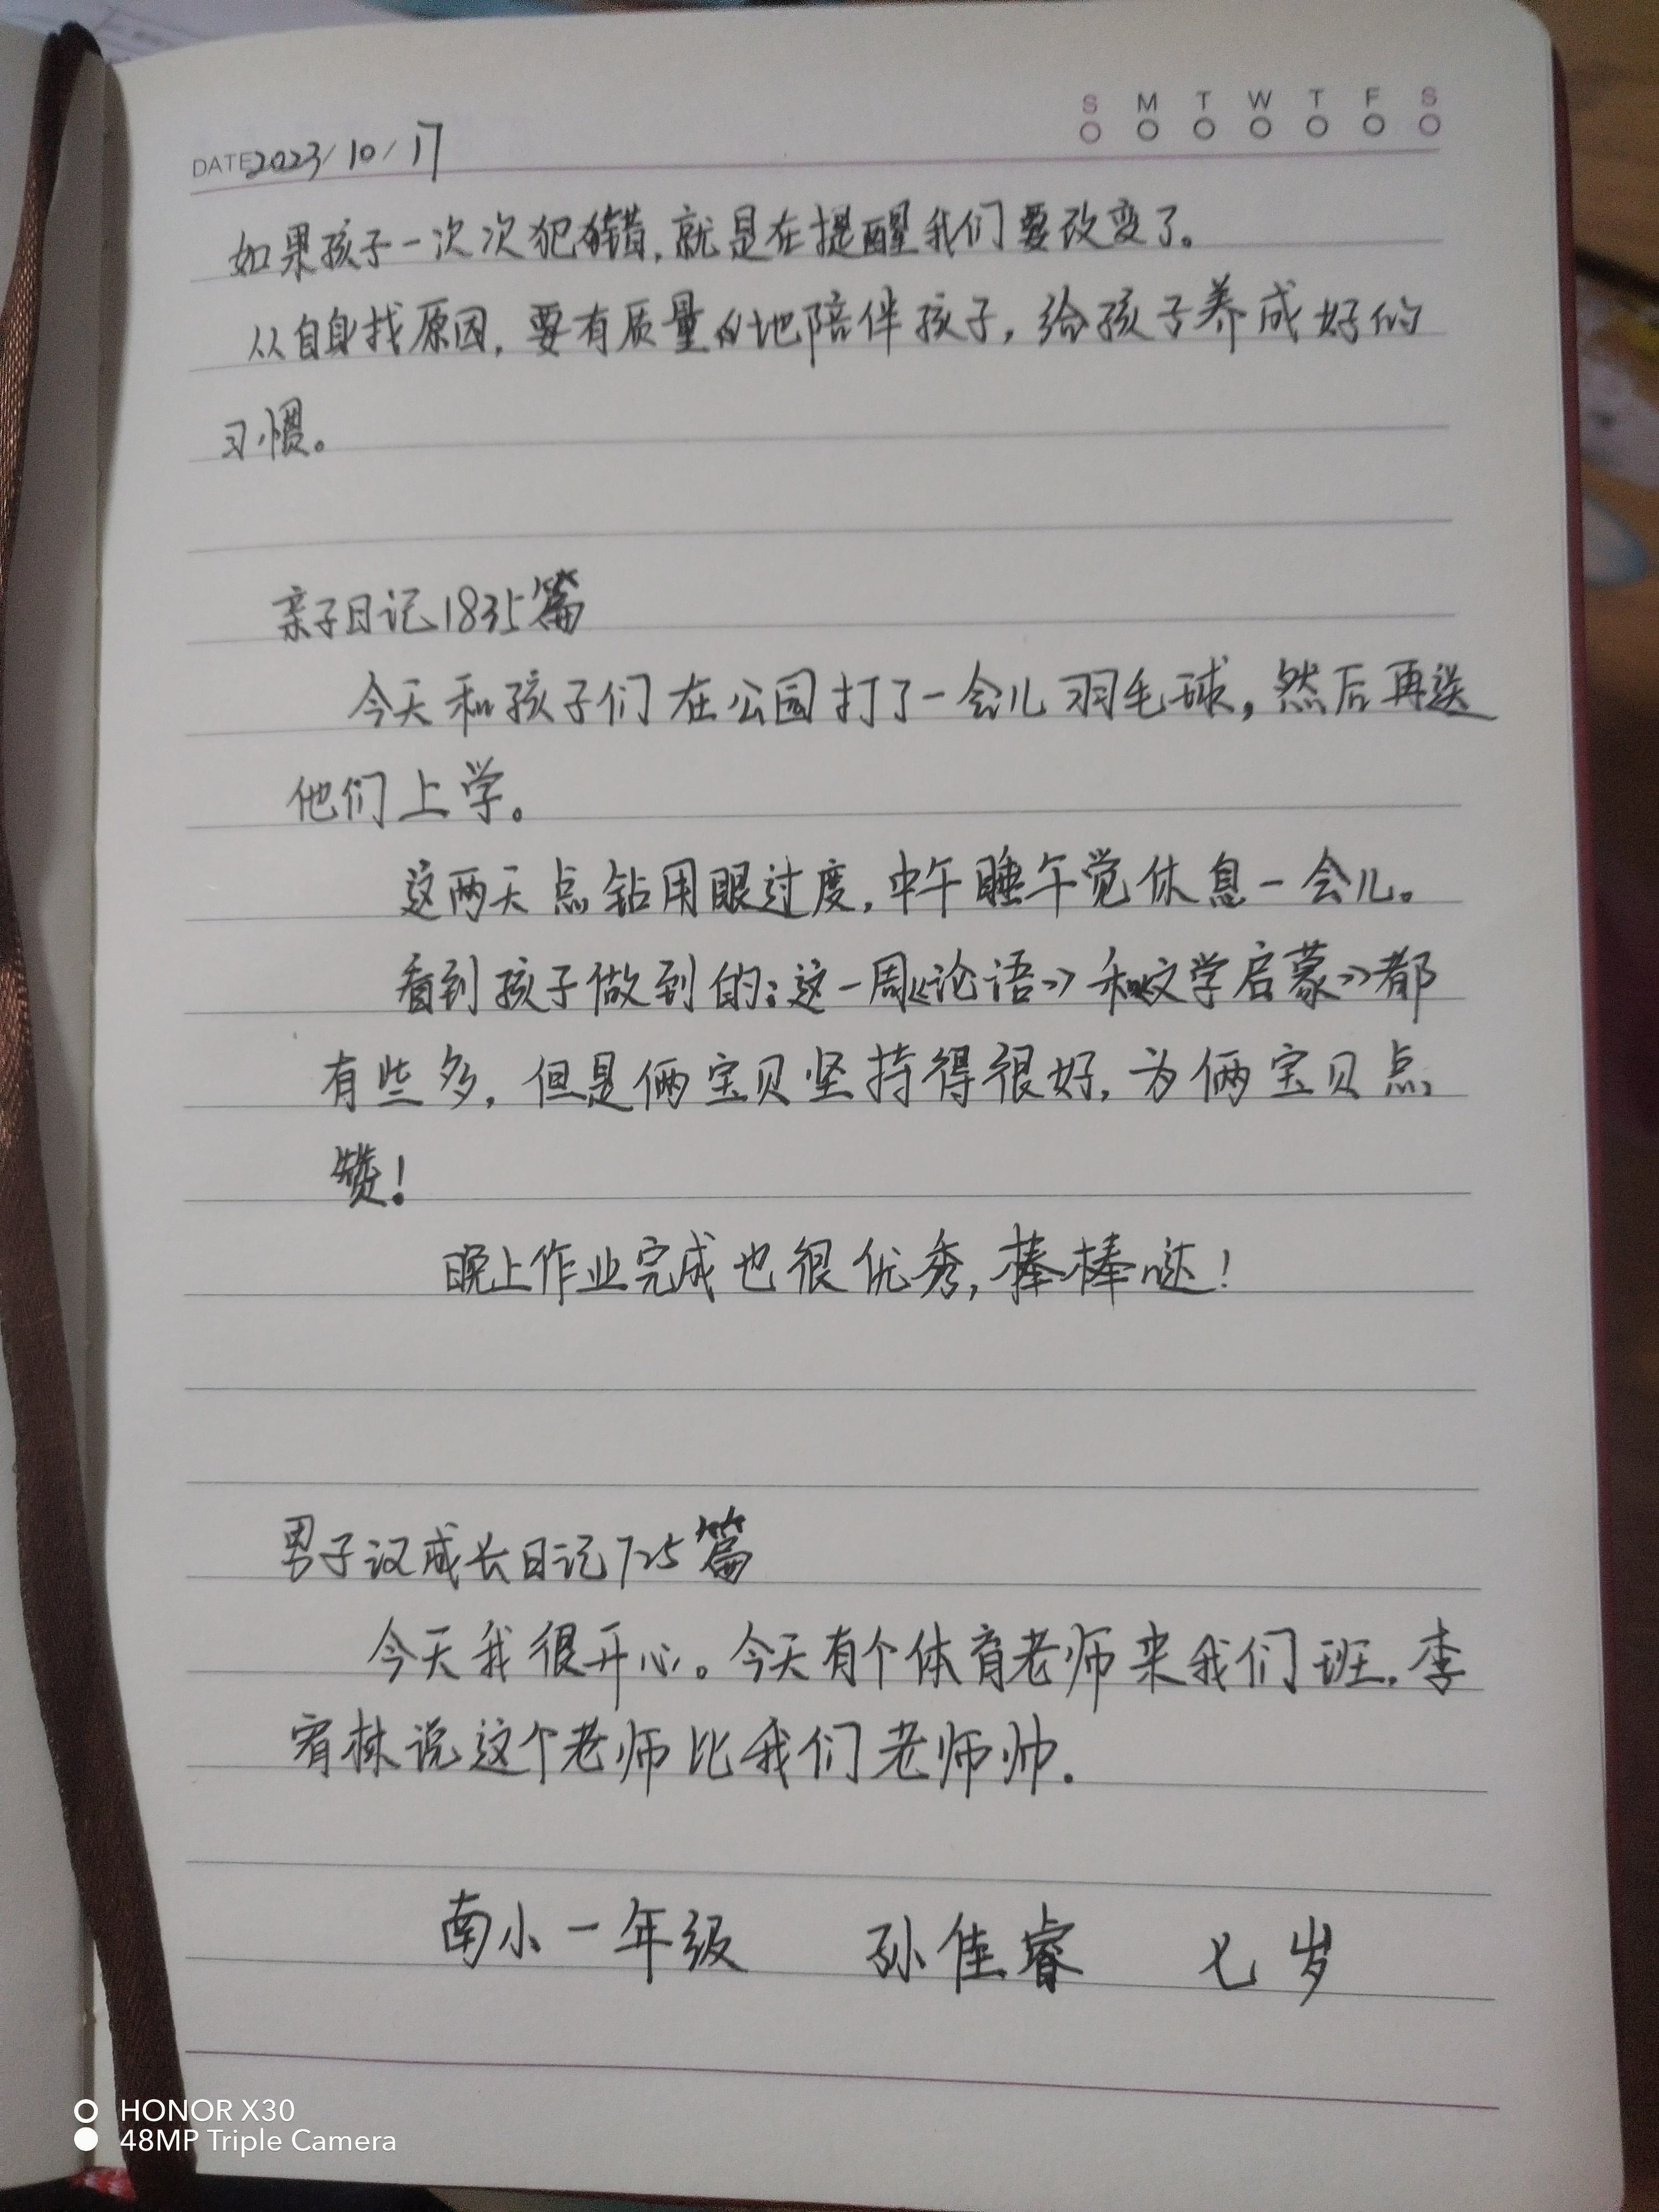 S M T W T F S
DATE 2023/10/17
如果孩子一次次犯错,就是在提醒我们要改变了。
从自身找原因,要有质量的地陪伴孩子,给孩子养成好的
习惯。
亲子日记1835篇
今天和孩子们在公园打了一会儿羽毛球,然后再送
他们上学。
这两天点钻用眼过度,中午睡午觉休息一会儿。
看到孩子做到的:这一周《论语》和《文学启蒙》都
有些多,但是俩宝贝坚持得很好,为俩宝贝点
赞!
晚上作业完成也很优秀,棒棒哒!
男子汉成长日记725篇
今天我很开心。今天有个体育老师来我们班,李
宥林说这个老师比我们老师帅.
南小一年级 孙佳睿 七岁
HONOR X30
48MP Triple Camera